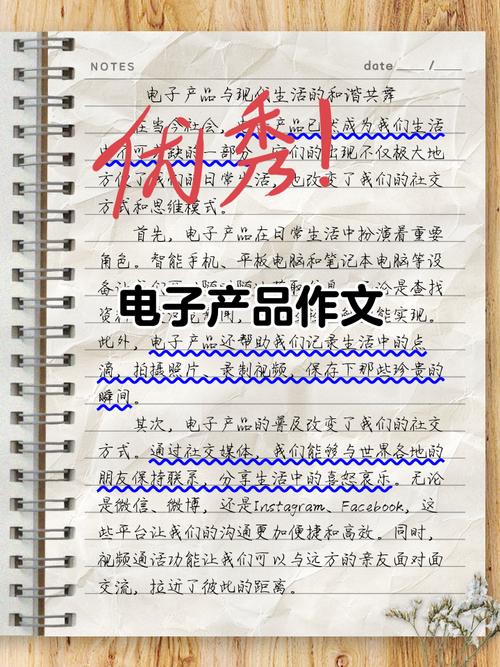 NOTES
date ___ / ___
电子产品与现代生活的和谐共舞
在当今社会，电子产品已然成为我们生活
中不可或缺的一部分，它们的出现不仅极大地
方便了我们的日常生活，也改变了我们的社交
方式和思维模式。
优秀！
首先，电子产品在日常生活中扮演着重要
角色。智能手机、平板电脑和笔记本电脑等设
备让我们
论是查找
资料
能实现。
电子产品作文
此外，电子产品还帮助我们记录生活中的点
滴，拍摄照片、录制视频，保存下那些珍贵的
瞬间。
其次，电子产品的普及改变了我们的社交
方式。通过社交媒体，我们能够与世界各地的
朋友保持联系，分享生活中的喜怒哀乐。无论
是微信、微博，还是Instagram、Facebook，这
些平台让我们的沟通更加便捷和高效。同时，
视频通话功能让我们可以与远方的亲友面对面
交流，拉近了彼此的距离。